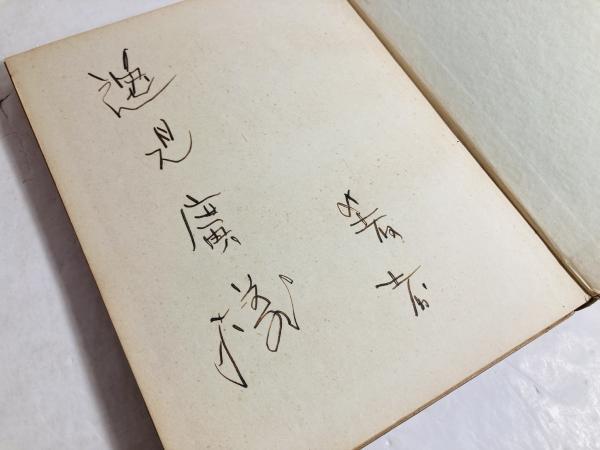 著者
逸見廣様